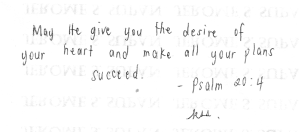 May He give you the desire of
your heart and make all your plans
succeed.
- Psalm 20:4